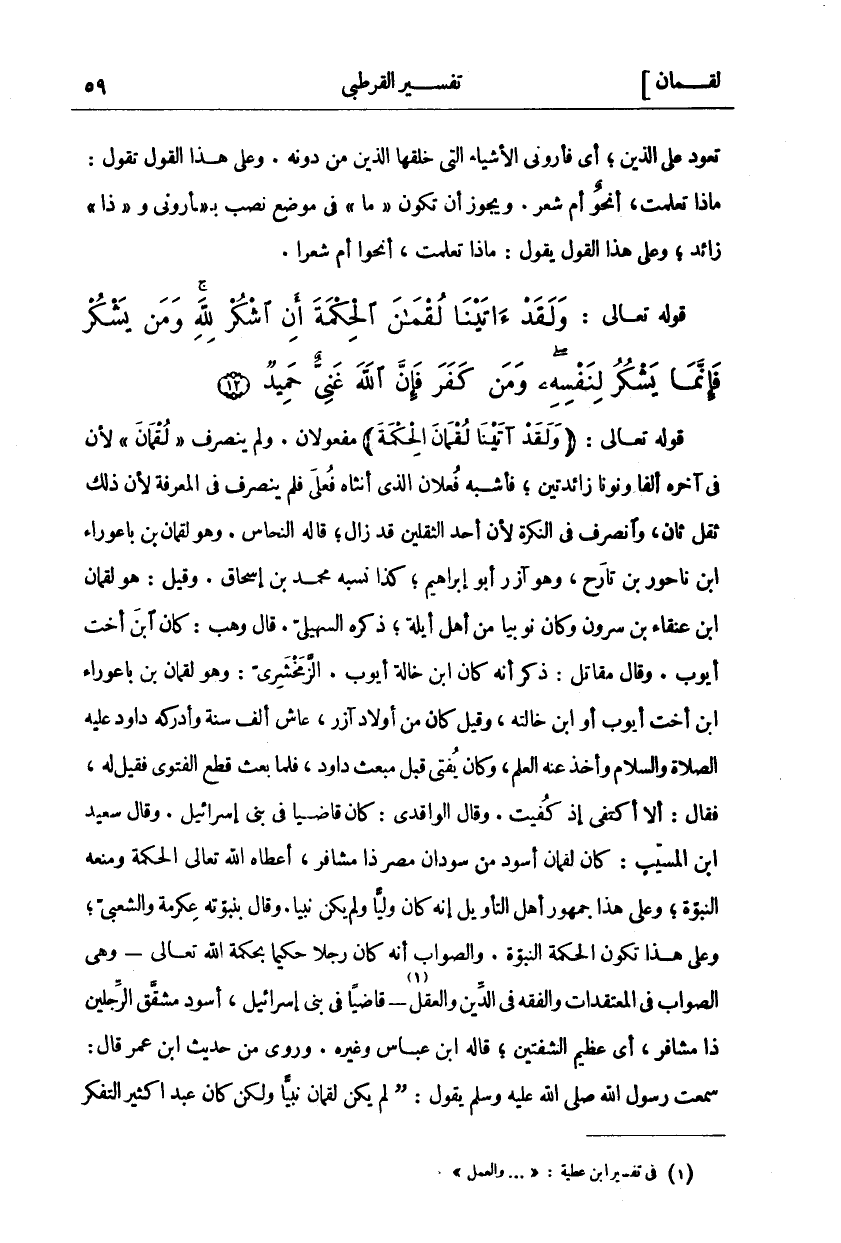 لقـــمان ]
تفســـير القرطبي
٥٩
تعود على الذين ؛ أى فأرونى الأشياء التى خلقها الذين من دونه . وعلى هــذا القول تقول :
ماذا تعلمت، أنحوٌ أم شعر . ويجوز أن تكون « ما » فى موضع نصب بـ«ـأرونى و « ذا »
زائد ؛ وعلى هذا القول يقول : ماذا تعلمت ، أنحوا أم شعرا .
قوله تعـالى : وَلَقَدْ ءَاتَيْنَا لُقْمَـٰنَ ٱلْحِكْمَةَ أَنِ ٱشْكُرْ لِلَّهِ ۚ وَمَن يَشْكُرْ
فَإِنَّمَا يَشْكُرُ لِنَفْسِهِۦ ۖ وَمَن كَفَرَ فَإِنَّ ٱللَّهَ غَنِىٌّ حَمِيدٌ ﴿١٢﴾
قوله تعـالى : ﴿ وَلَقَدْ آتَيْنَا لُقْمَانَ الْحِكْمَةَ ﴾ مفعولان . ولم ينصرف « لُقْمَانَ » لأن
فى آخره ألفا ونونا زائدتين ؛ فأشـبه فُعلان الذى أنثاه فُعلَى فلم ينصرف فى المعرفة لأن ذلك
ثقل ثان، وٱنصرف فى النكرة لأن أحد الثقلين قد زال؛ قاله النحاس . وهو لقمان بن باعوراء
ابن ناحور بن تارَح ، وهو آزر أبو إبراهيم ؛ كذا نسبه محمـد بن إسحاق . وقيل : هو لقمان
ابن عنقاء بن سرون وكان نوبيا من أهل أيلة ؛ ذكره السهيلىّ . قال وهب : كان ٱبنَ أخت
أيوب . وقال مقاتل : ذكر أنه كان ابن خالة أيوب . الزَّمَخْشَرِىّ : وهو لقمان بن باعوراء
ابن أخت أيوب أو ابن خالته ، وقيل كان من أولاد آزر ، عاش ألف سنة وأدركه داود عليه
الصلاة والسلام وأخذ عنه العلم، وكان يُفتى قبل مبعث داود ، فلما بعث قطع الفتوى فقيل له ،
فقال : ألا أكتفى إذ كُفيت . وقال الواقدى : كان قاضـيا فى بنى إسرائيل . وقال سعيد
ابن المسيّب : كان لقمان أسود من سودان مصر ذا مشافر ، أعطاه الله تعالى الحكمة ومنعه
النبوّة ؛ وعلى هذا جمهور أهل التأويل إنه كان وليًّا ولم يكن نبيا. وقال بنبوّته عِكرمة والشعبىّ ؛
وعلى هــذا تكون الحكمة النبوّة . والصواب أنه كان رجلا حكيما بحكمة الله تعـالى – وهى
الصواب فى المعتقدات والفقه فى الدِّين والعقل(١)– قاضيًا فى بنى إسرائيل ، أسود مشقَّق الرِّجلين
ذا مشافر ، أى عظيم الشفتين ؛ قاله ابن عبـاس وغيره . وروى من حديث ابن عمر قال :
سمعت رسول الله صلى الله عليه وسلم يقول : " لم يكن لقمان نبيًّا ولكن كان عبدا كثير التفكر
(١) فى تفسير ابن عطية : « ... والعمل » .